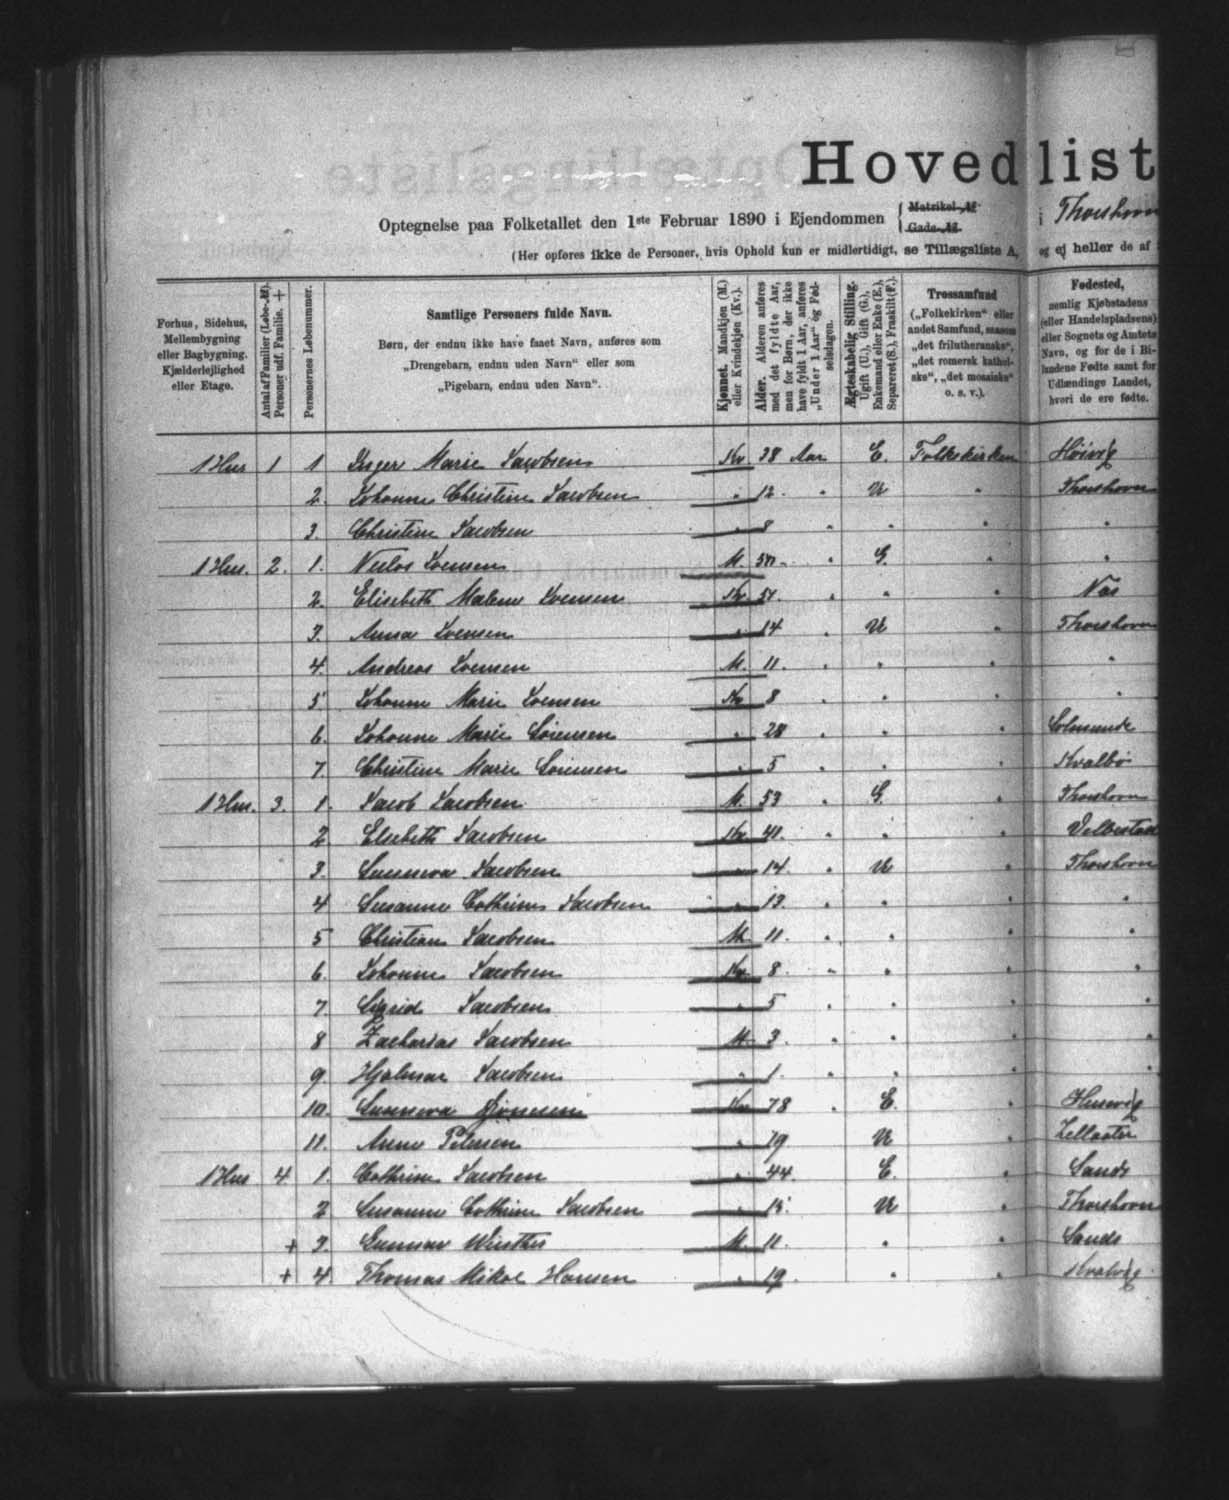 Hovedlist
Optegnelse paa Folketallet den 1ste Februar 1890 i Ejendommen { Matrikel-№ Gade-№ i Thorshavn
(Her opføres ikke de Personer, hvis Ophold kun er midlertidigt, se Tillægsliste A, og ej heller de af
Forhus, Sidehus, Mellembygning eller Bagbygning. Kjælderlejlighed eller Etage.
Antal af Familier (Løbe-№). Personer udf. Familie. +
Personernes Løbenummer.
Samtlige Personers fulde Navn.
Børn, der endnu ikke have faaet Navn, anføres som
„Drengebarn, endnu uden Navn“ eller som
„Pigebarn, endnu uden Navn“.
Kjønnet. Mandkjøn (M.) eller Kvindekjøn (Kv.).
Alder. Alderen anføres med det fyldte Aar, men for Børn, der ikke have fyldt 1 Aar, anføres „Under 1 Aar“ og Fødselsdagen.
Ægteskabelig Stilling. Ugift (U.), Gift (G.), Enkemand eller Enke (E.), Separeret (S.), Fraskilt (F.).
Trossamfund („Folkekirken“ eller andet Samfund, saasom „det frilutheranske“, „det romersk katholske“, „det mosaiske“ o. s. v.).
Fødested, nemlig Kjøbstadens (eller Handelspladsens) eller Sognets og Amtets Navn, og for de i Bilandene Fødte samt for Udlændinge Landet, hvori de ere fødte.
1 Hus 1 1 Inger Marie Jacobsen Kv 38 Aar E. Folkekirken Høivig
2. Johanne Christine Jacobsen " 12 " U " Thorshavn
3. Christine Jacobsen " 8 " " " "
1 Hus. 2. 1. Joensen M. " G. " "
2. Elisebeth Malene Joensen Kv 51 " " " Näs
3. Anna Joensen " 14 " U " Thorshavn
4. Andreas Joensen M. 11. " " " "
5 Johanne Marie Joensen Kv 8 " " " "
6. Johanne Marie Sörensen " 28 " " "
7. Christine Marie Sörensen " 5 " " " Kvalbö
1 Hus. 3. 1. Jacob Jacobsen M. 53 " G. " Thorshavn
2 Elsebeth Jacobsen Kv. 41. " " " Velbestad
3. Sunneva Jacobsen 14. " U " Thorshavn
4 Susanne Cathrine Jacobsen " 13. " " " "
5 Christian Jacobsen M. 11. " " " "
6. Johanne Jacobsen Kv 8 " " " "
7. Sigrid Jacobsen " 5 " " " "
8 Zacharias Jacobsen M. 3. " " " "
9. Hjalmar Jacobsen " 1. " " " "
10. Sunneva Kv 78 " E. Husevig
11. Anne Petersen " 79. U
1 Hus 4 1. Cathrine Jacobsen " 44. E. " Sands
2 Susanne Cathrine Jacobsen " 15. U " Thorshavn
+ 3. Gunnar M. 11. " " Sands
+ 4 Thomas Mikal Hansen " 19. " " Kvalvig